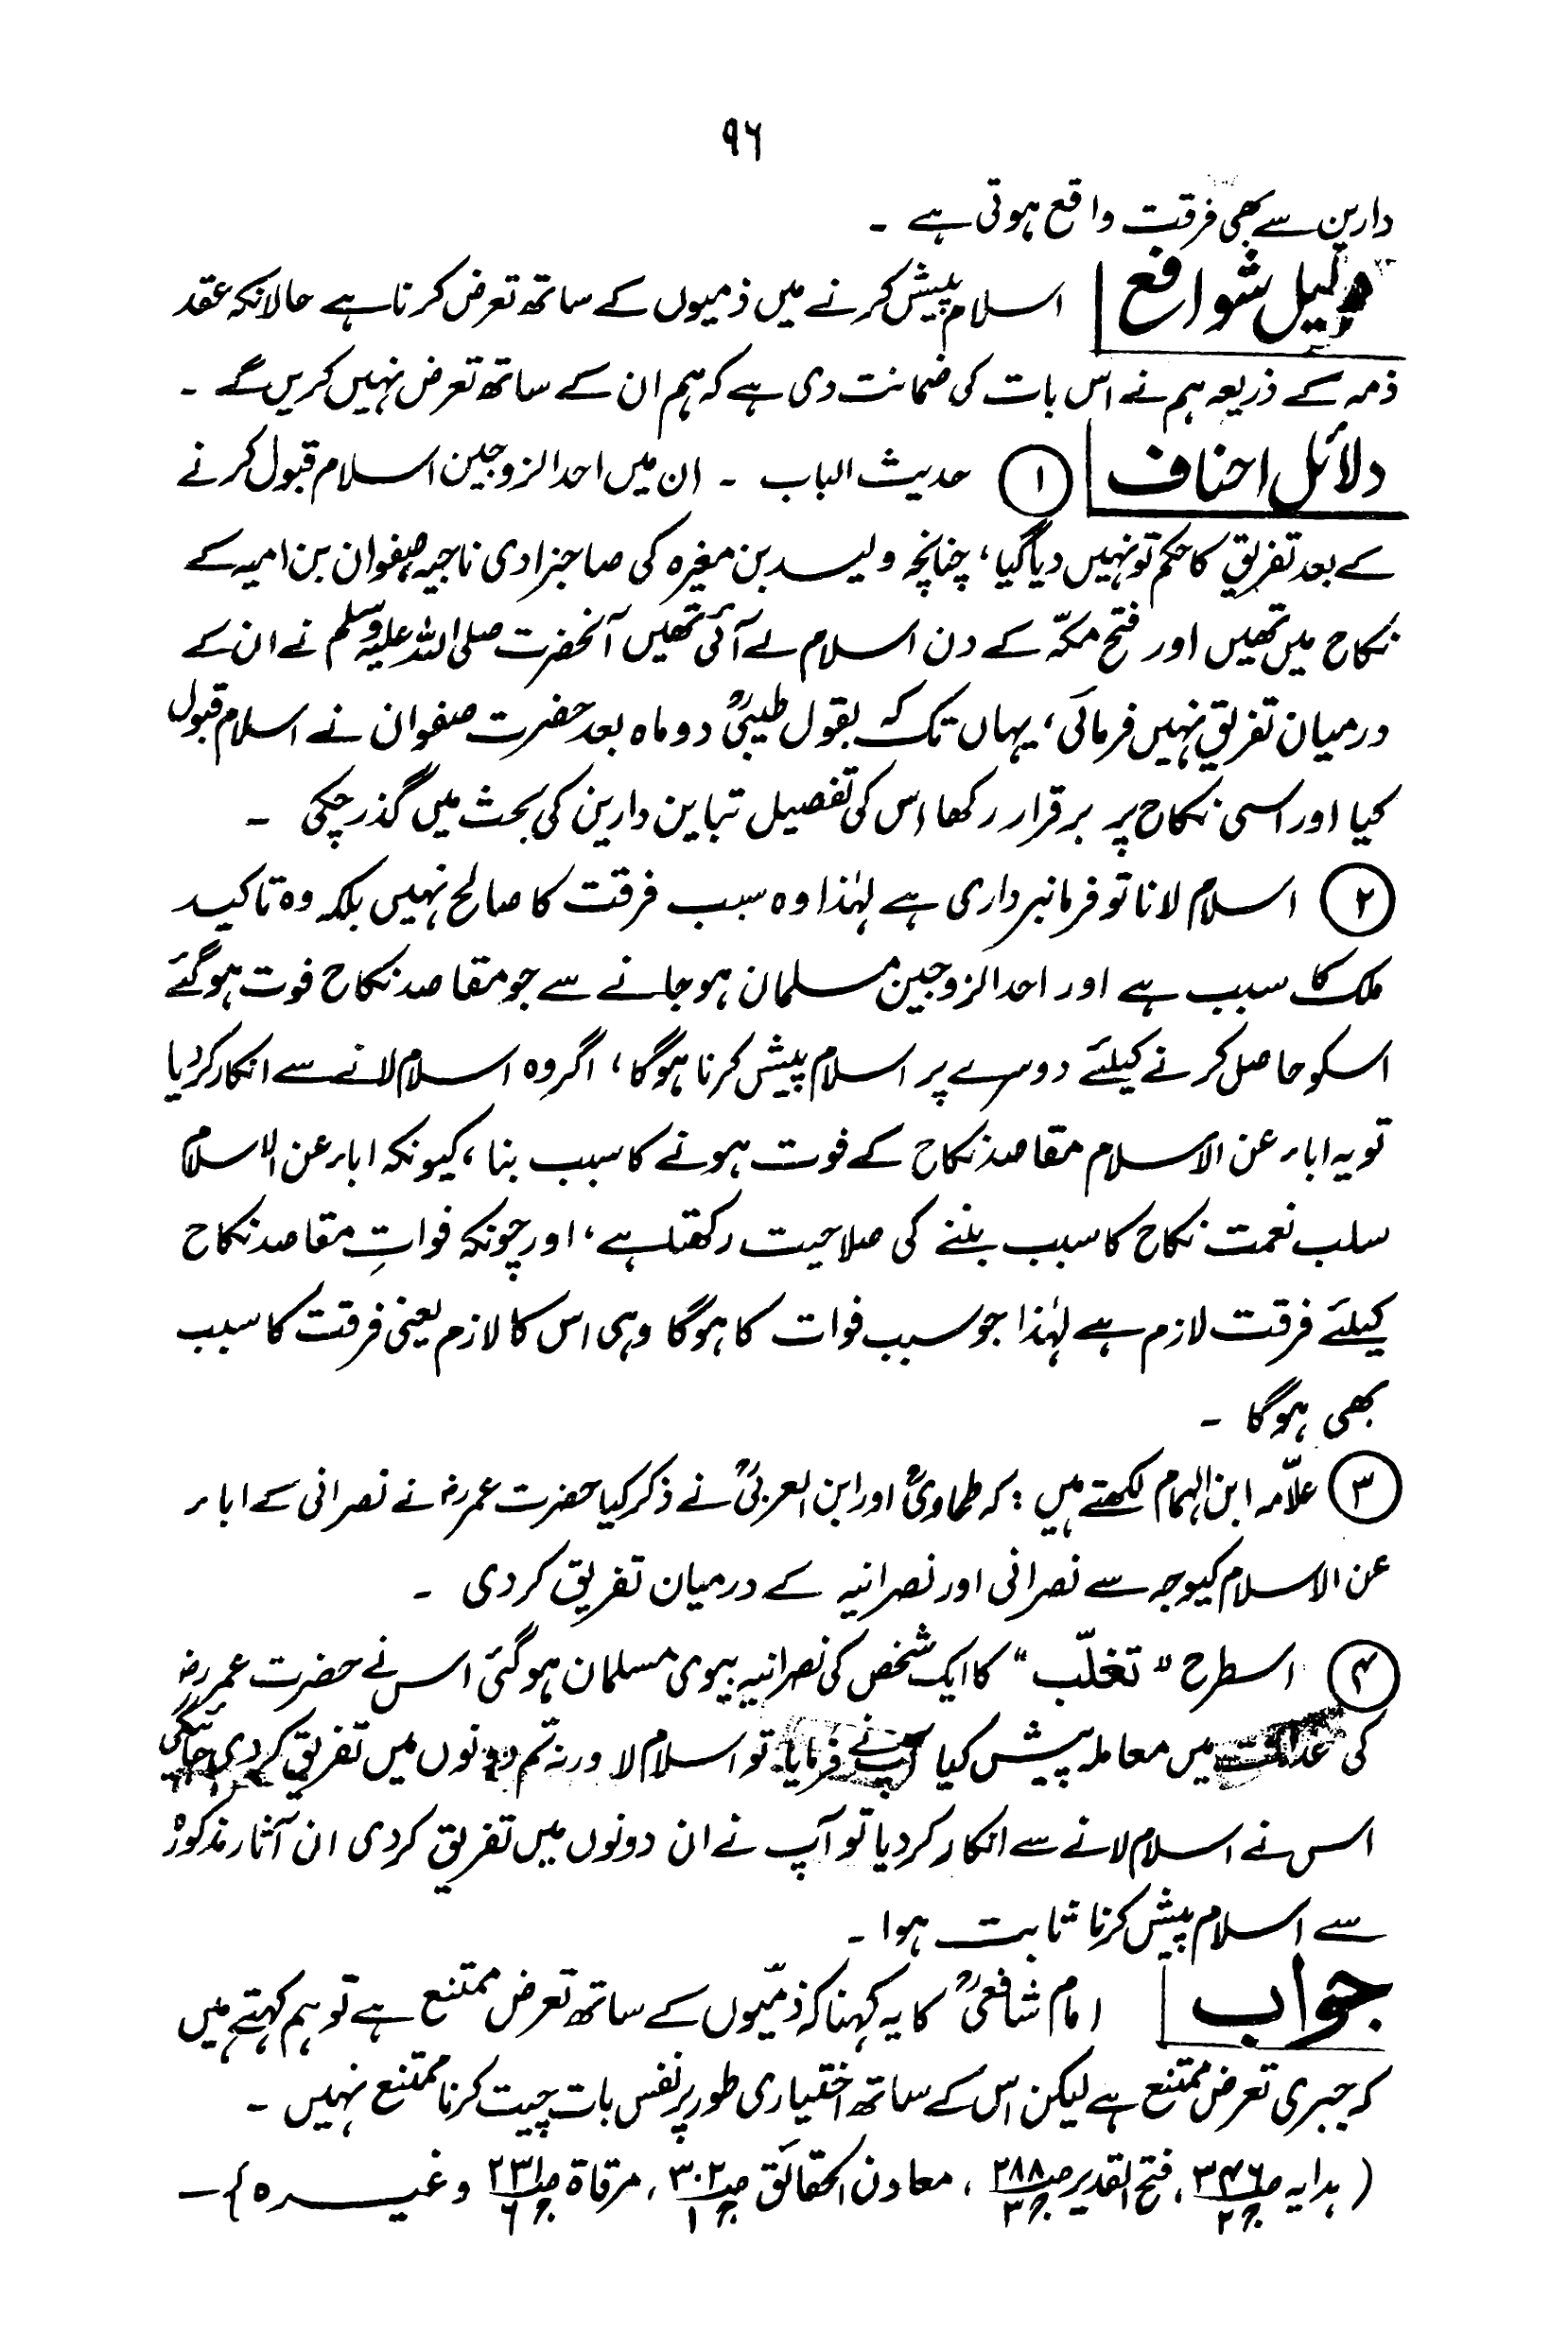 ۹۶
دارین سے بھی فرقت واقع ہوتی ہے ۔
دلیل شوافع اسلام پیش کرنے میں ذمیوں کے ساتھ تعرض کرنا ہے حالانکہ عقد
ذمہ کے ذریعہ ہم نے اس بات کی ضمانت دی ہے کہ ہم ان کے ساتھ تعرض نہیں کریں گے ۔
دلائل احناف ① حدیث الباب ۔ ان میں احد الزوجین اسلام قبول کرنے
کے بعد تفریق کا حکم تو نہیں دیا گیا، چنانچہ ولید بن مغیرہ کی صاحبزادی ناجیہ صفوان بن امیہ کے
نکاح میں تھیں اور فتح مکہّ کے دن اسلام لے آئی تھیں آنحضرت صلی اللہ علیہ وسلم نے ان کے
درمیان تفریق نہیں فرمائی، یہاں تک کہ بقول طیبیؒ دو ماہ بعد حضرت صفوان نے اسلام قبول
کیا اور اسی نکاح پر برقرار رکھا اس کی تفصیل تباین دارین کی بحث میں گذر چکی ۔
② اسلام لانا تو فرمانبرداری ہے لہٰذا وہ سبب فرقت کا صالح نہیں بلکہ وہ تاکید
ملک کا سبب ہے اور احد الزوجین مسلمان ہو جانے سے جو مقاصد نکاح فوت ہو گئے
اسکو حاصل کرنے کیلئے دوسرے پر اسلام پیش کرنا ہوگا، اگر وہ اسلام لانے سے انکار کر دیا
تو یہ اباء عن الاسلام مقاصد نکاح کے فوت ہونے کا سبب بنا، کیونکہ اباء عن الاسلام
سلب نعمت نکاح کا سبب بننے کی صلاحیت رکھتا ہے، اور چونکہ فواتِ مقاصد نکاح
کیلئے فرقت لازم ہے لہٰذا جو سبب فوات کا ہوگا وہی اس کا لازم یعنی فرقت کا سبب
بھی ہوگا ۔
③ علاّمہ ابن الہمام لکھتے ہیں : کہ طحاویؒ اور ابن العربیؒ نے ذکر کیا حضرت عمرؓ نے نصرانی کے اباء
عن الاسلام کیوجہ سے نصرانی اور نصرانیہ کے درمیان تفریق کر دی ۔
④ اسطرح " تغلّب " کا ایک شخص کی نصرانیہ بیوی مسلمان ہو گئی اس نے حضرت عمرؓ
کی عدالت میں معاملہ پیش کیا آپ نے فرمایا تو اسلام لا ورنہ تم دونوں میں تفریق کر دی جائیگی
اس نے اسلام لانے سے انکار کر دیا تو آپ نے ان دونوں میں تفریق کر دی ان آثار مذکورہ
سے اسلام پیش کرنا ثابت ہوا ۔
جواب امام شافعیؒ کا یہ کہنا کہ ذمّیوں کے ساتھ تعرض ممتنع ہے تو ہم کہتے ہیں
کہ جبری تعرض ممتنع ہے لیکن اس کے ساتھ اختیاری طور پر نفس بات چیت کرنا ممتنع نہیں ۔
( ہدایہ ص۳۴۶ ج۲، فتح القدیر ص۲۸۸ ج۳، معادن الحقائق ص۳۰۲ ج۱، مرقاة ص۲۳۱ ج۶ وغیرہ ) ۔